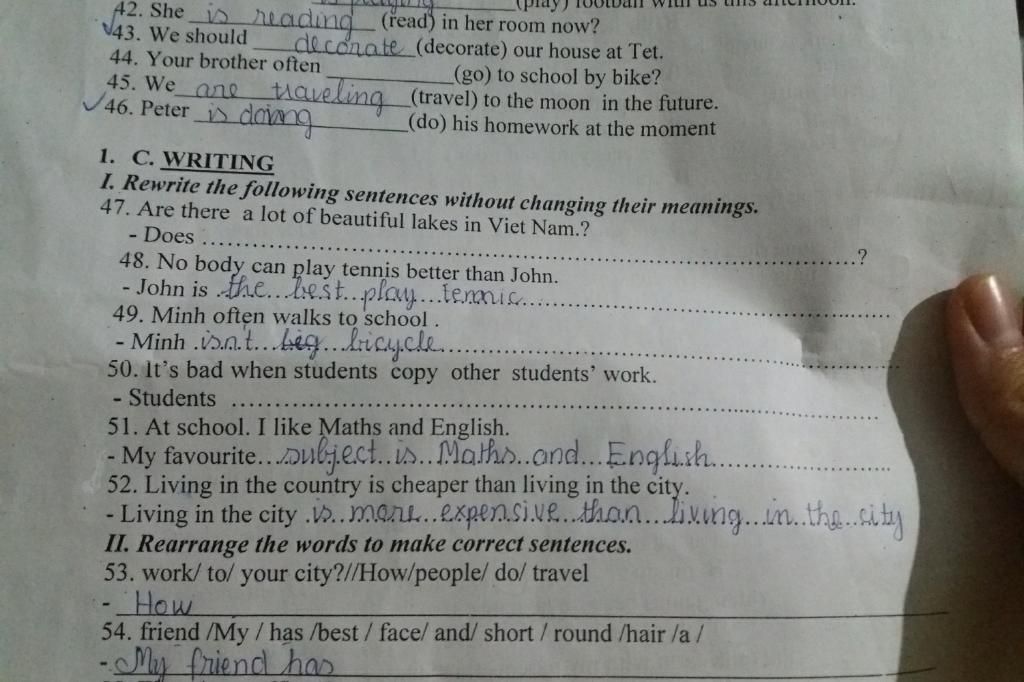 (play) football with us this afternoon.
42. She is reading (read) in her room now?
43. We should decorate (decorate) our house at Tet.
44. Your brother often ____________(go) to school by bike?
45. We are traveling (travel) to the moon in the future.
46. Peter is doing (do) his homework at the moment
1. C. WRITING
I. Rewrite the following sentences without changing their meanings.
47. Are there a lot of beautiful lakes in Viet Nam.?
- Does ……………………………………………………?
48. No body can play tennis better than John.
- John is the best play tennic
49. Minh often walks to school .
- Minh isn't big bicycle
50. It's bad when students copy other students' work.
- Students ……………………………………………………
51. At school. I like Maths and English.
- My favourite subject is Maths and English
52. Living in the country is cheaper than living in the city.
- Living in the city is more expensive than living in the city
II. Rearrange the words to make correct sentences.
53. work/ to/ your city?//How/people/ do/ travel
- How
54. friend /My / has /best / face/ and/ short / round /hair /a /
- My friend has